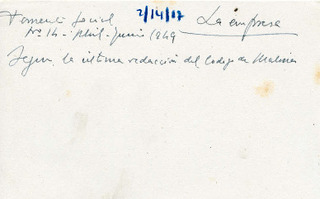 2/14/17
Fomento Social
La empresa
Nº 14 - Abril - Junio 1949
Según la última redacción del Código de Malinas